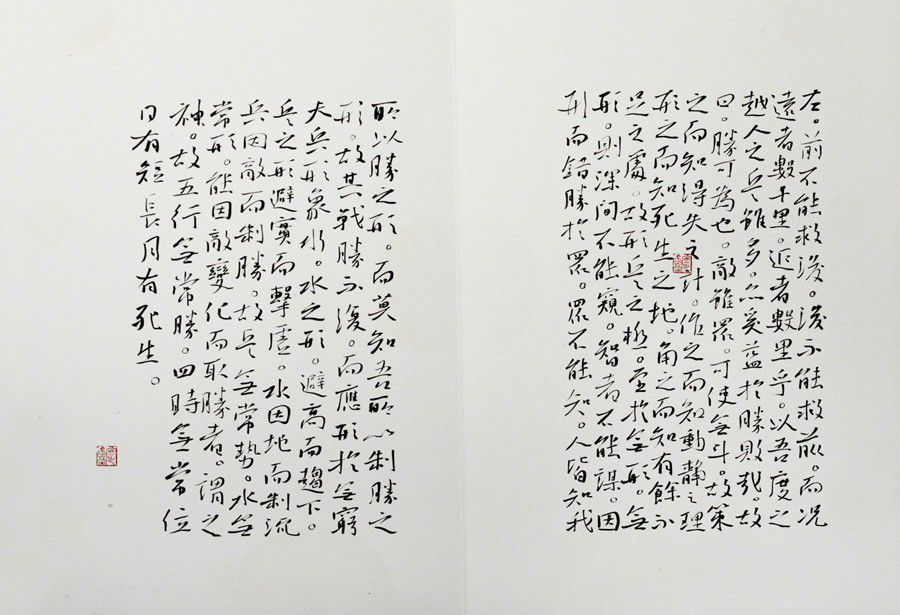 左。前不能救後。後不能救前。而況
遠者數十里。近者數里乎。以吾度之
越人之兵雖多。亦奚益於勝敗哉。故
曰。勝可為也。敵雖眾。可使無斗。故策
之而知得失之計。作之而知動靜之理
形之而知死生之地。角之而知有餘不
足之處。故形兵之極。至於無形。無
形。則深間不能窺。智者不能謀。因
形而錯勝於眾。眾不能知。人皆知我
所以勝之形。而莫知吾所以制勝之
形。故其戰勝不復。而應形於無窮
夫兵形象水。水之形。避高而趨下。
兵之形避實而擊虛。水因地而制流
兵因敵而制勝。故兵無常勢。水無
常形。能因敵變化而取勝者。謂之
神。故五行無常勝。四時無常位
日有短長月有死生。